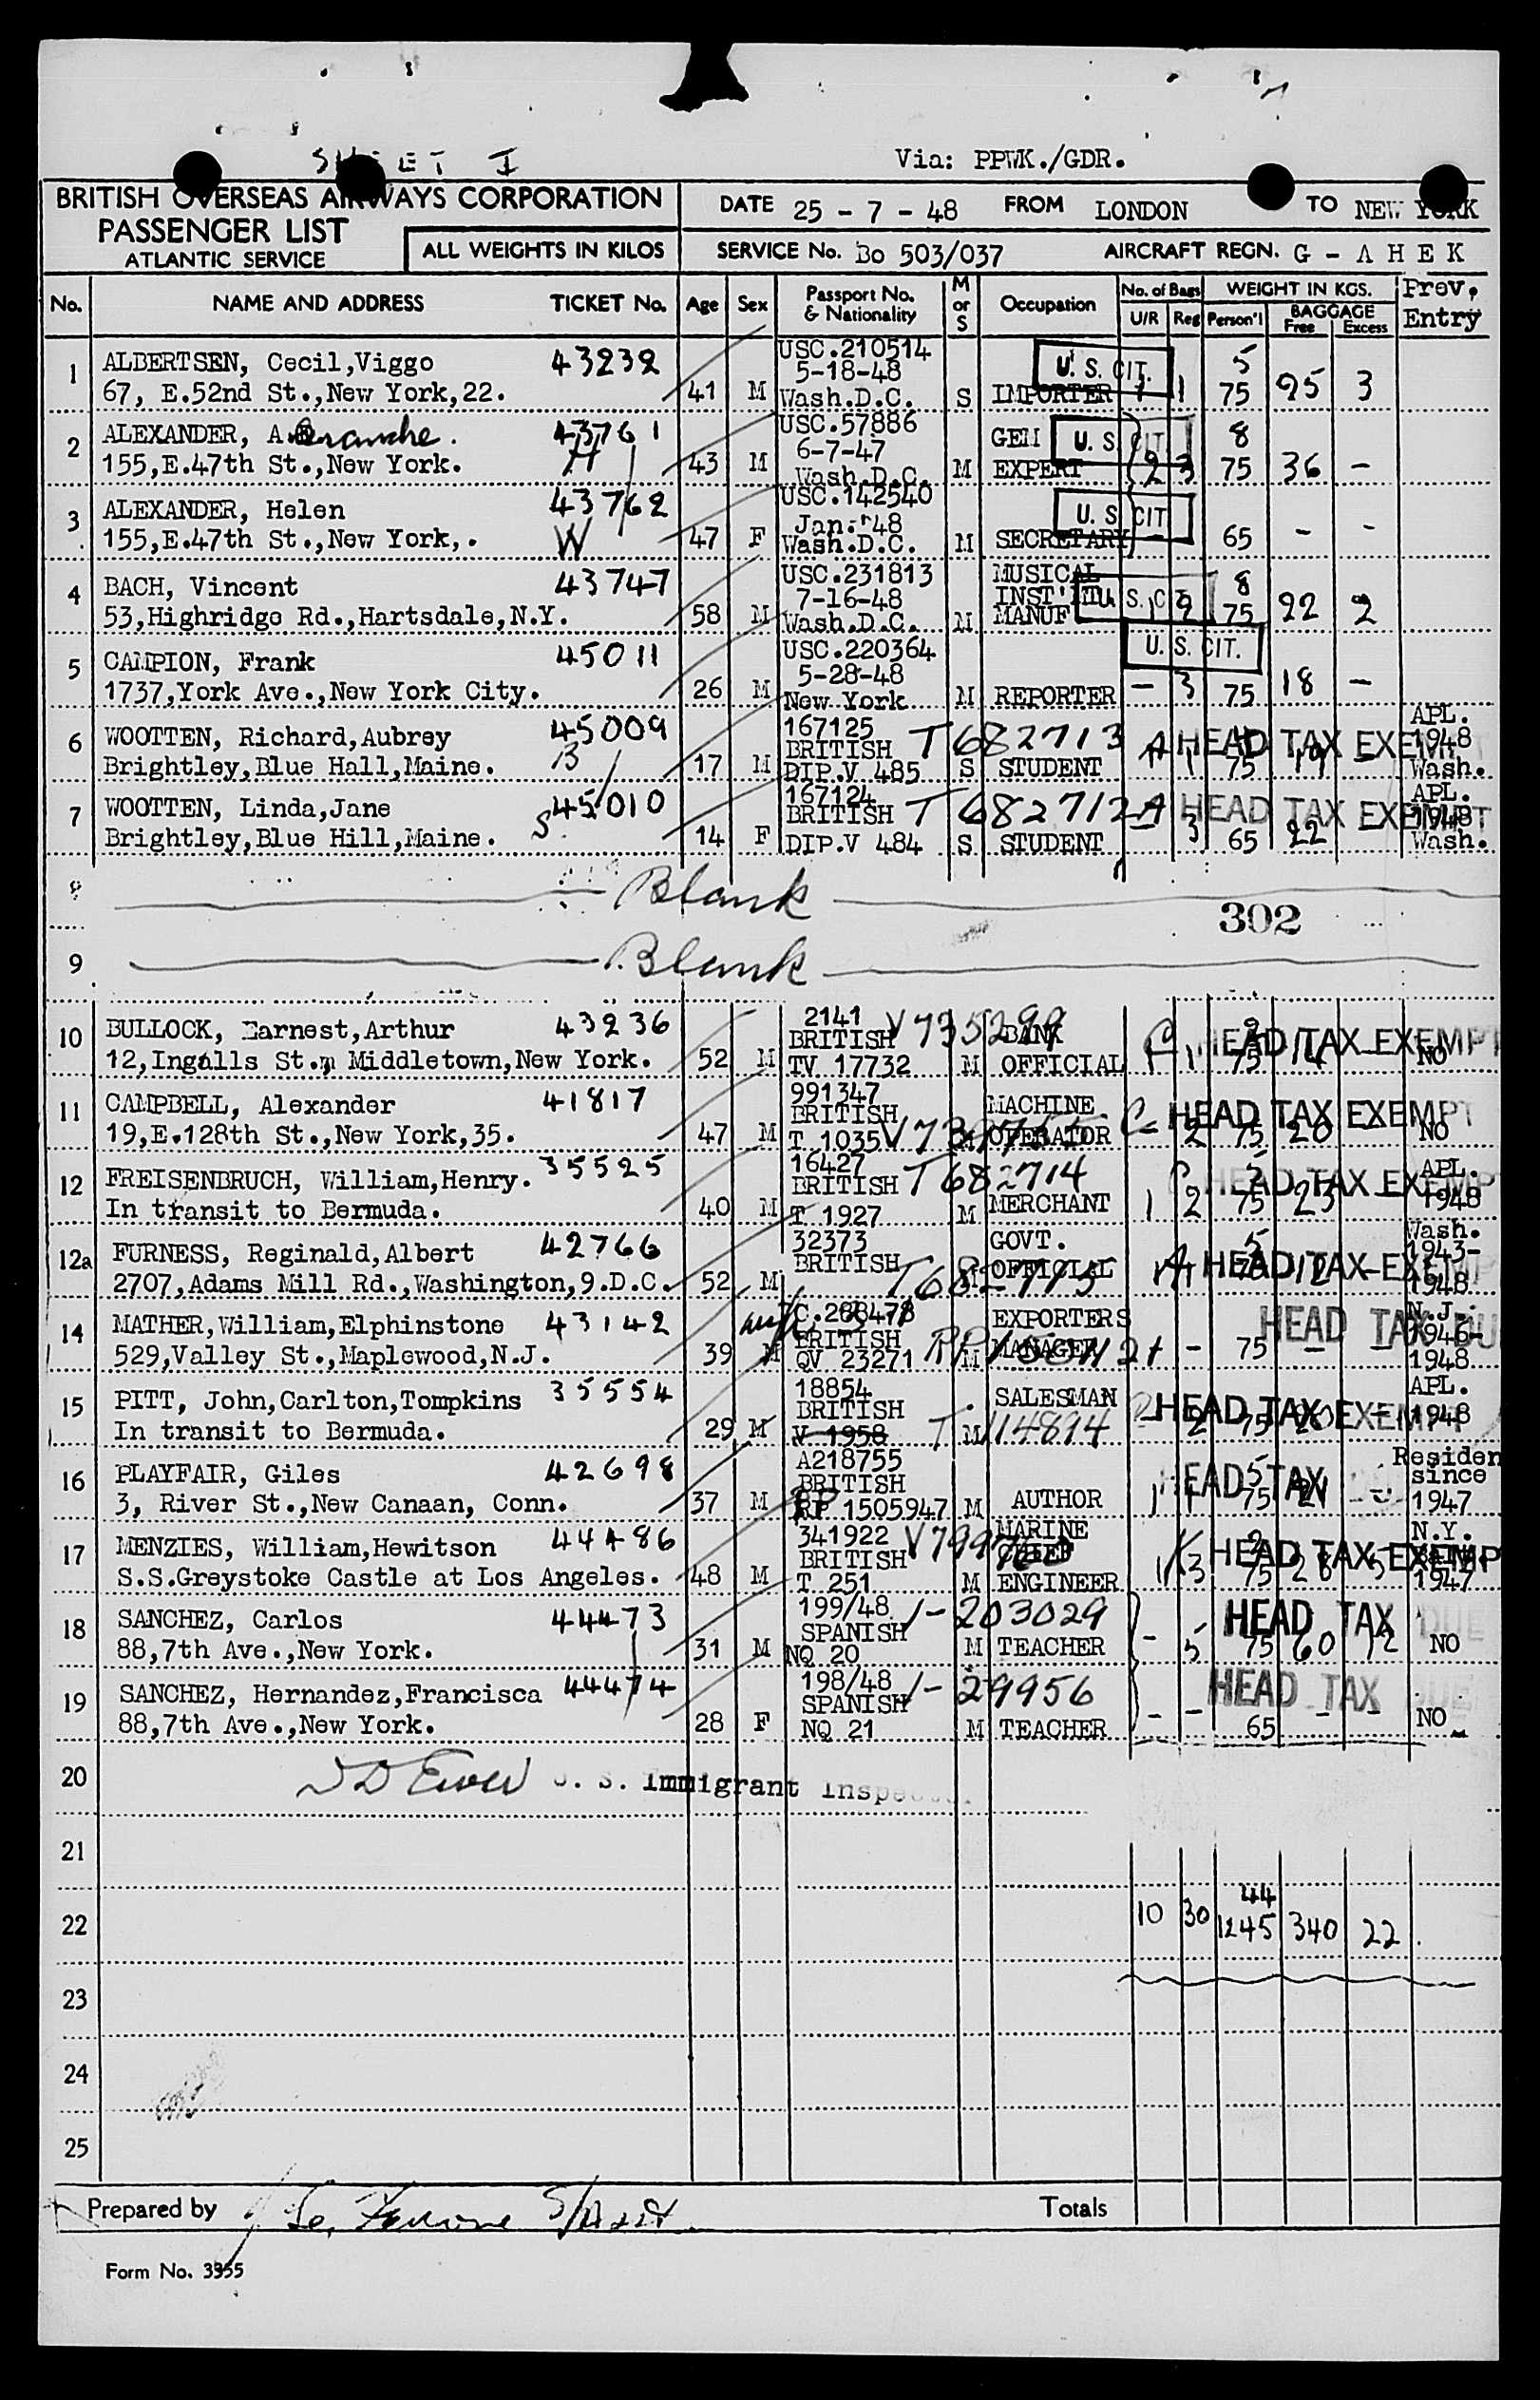 SHEET I
Via: PPWK./GDR.
BRITISH OVERSEAS AIRWAYS CORPORATION
PASSENGER LIST
ATLANTIC SERVICE
ALL WEIGHTS IN KILOS
DATE 25 - 7 - 48 FROM LONDON TO NEW YORK
SERVICE No. Bo 503/037 AIRCRAFT REGN. G - A H E K
No. NAME AND ADDRESS TICKET No. Age Sex Passport No. & Nationality M or S Occupation No. of Bags U/R Reg WEIGHT IN KGS. Person'l BAGGAGE Free Excess Prev. Entry
1 ALBERTSEN, Cecil,Viggo 43232 USC.210514 U. S. CIT. 5
5-18-48
67, E.52nd St.,New York,22. 41 M Wash.D.C. S IMPORTER 1 1 75 25 3
2 ALEXANDER, A. 43761 USC.57886 GEM U. S. CIT. 8
H 6-7-47
155,E.47th St.,New York. 43 M Wash.D.C. M EXPERT 2 3 75 36 -
3 ALEXANDER, Helen 43762 USC.142540 U. S. CIT.
W Jan.'48
155,E.47th St.,New York,. 47 F Wash.D.C. M SECRETARY - 65 - -
4 BACH, Vincent 43747 USC.231813 MUSICAL U. S. CIT. 8
7-16-48 INST'
53,Highridge Rd.,Hartsdale,N.Y. 58 M Wash.D.C. M MANUF 1 2 75 22 2
5 CAMPION, Frank 45011 USC.220364 U. S. CIT.
5-28-48
1737,York Ave.,New York City. 26 M New York M REPORTER - 3 75 18 -
6 WOOTTEN, Richard,Aubrey 45009 167125 APL.
B BRITISH T 682713 A HEAD TAX EXEMPT 1948
Brightley,Blue Hall,Maine. 17 M DIP.V 485 S STUDENT 1 75 19 - Wash.
7 WOOTTEN, Linda,Jane 45010 167124 APL.
S BRITISH T 682712 A HEAD TAX EXEMPT 1948
Brightley,Blue Hill,Maine. 14 F DIP.V 484 S STUDENT - 3 65 22 Wash.
8 Blank
302
9 Blank
10 BULLOCK, Earnest,Arthur 43236 2141
BRITISH V735299 BANK C HEAD TAX EXEMPT
12,Ingalls St., Middletown,New York. 52 M TV 17732 M OFFICIAL 1 1 75 14 - NO
11 CAMPBELL, Alexander 41817 991347 MACHINE
BRITISH C HEAD TAX EXEMPT
19,E.128th St.,New York,35. 47 M T 1035 M OPERATOR - 2 75 20 - NO
12 FREISENBRUCH, William,Henry. 35525 16427 5 APL.
BRITISH T682714 C HEAD TAX EXEMPT
In transit to Bermuda. 40 M T 1927 M MERCHANT 1 2 75 23 - 1948
12a FURNESS, Reginald,Albert 42766 32373 GOVT. 5 Wash.
BRITISH A HEAD TAX EXEMPT 1943-
2707,Adams Mill Rd.,Washington,9.D.C. 52 M M OFFICIAL 1 1 75 12 - 1948
14 MATHER,William,Elphinstone 43142 EXPORTERS HEAD TAX DUE N.J.
BRITISH MANAGER 1946-
529,Valley St.,Maplewood,N.J. 39 M QV 23271 M - 75 - - 1948
15 PITT, John,Carlton,Tompkins 35554 18854 SALESMAN APL.
BRITISH HEAD TAX EXEMPT 1948
In transit to Bermuda. 29 M V 1958 M T 114894 - 2 75 20 -
16 PLAYFAIR, Giles 42698 A218755 5 Residen
BRITISH HEAD TAX since
3, River St.,New Canaan, Conn. 37 M RP 1505947 M AUTHOR 1 1 75 21 - 1947
17 MENZIES, William,Hewitson 44486 341922 MARINE 2 N.Y.
BRITISH HEAD TAX EXEMPT
S.S.Greystoke Castle at Los Angeles. 48 M T 251 M ENGINEER 1 3 75 28 5 1947
18 SANCHEZ, Carlos 44473 199/48 1-203029 HEAD TAX DUE
SPANISH
88,7th Ave.,New York. 31 M NQ 20 M TEACHER - 5 75 60 12 NO
19 SANCHEZ, Hernandez,Francisca 44474 198/48 1-29956 HEAD TAX DUE
SPANISH
88,7th Ave.,New York. 28 F NQ 21 M TEACHER - - 65 - - NO
20 U. S. Immigrant Inspector
21
22 44
10 30 1245 340 22
23
24
25
Prepared by Totals
Form No. 3955